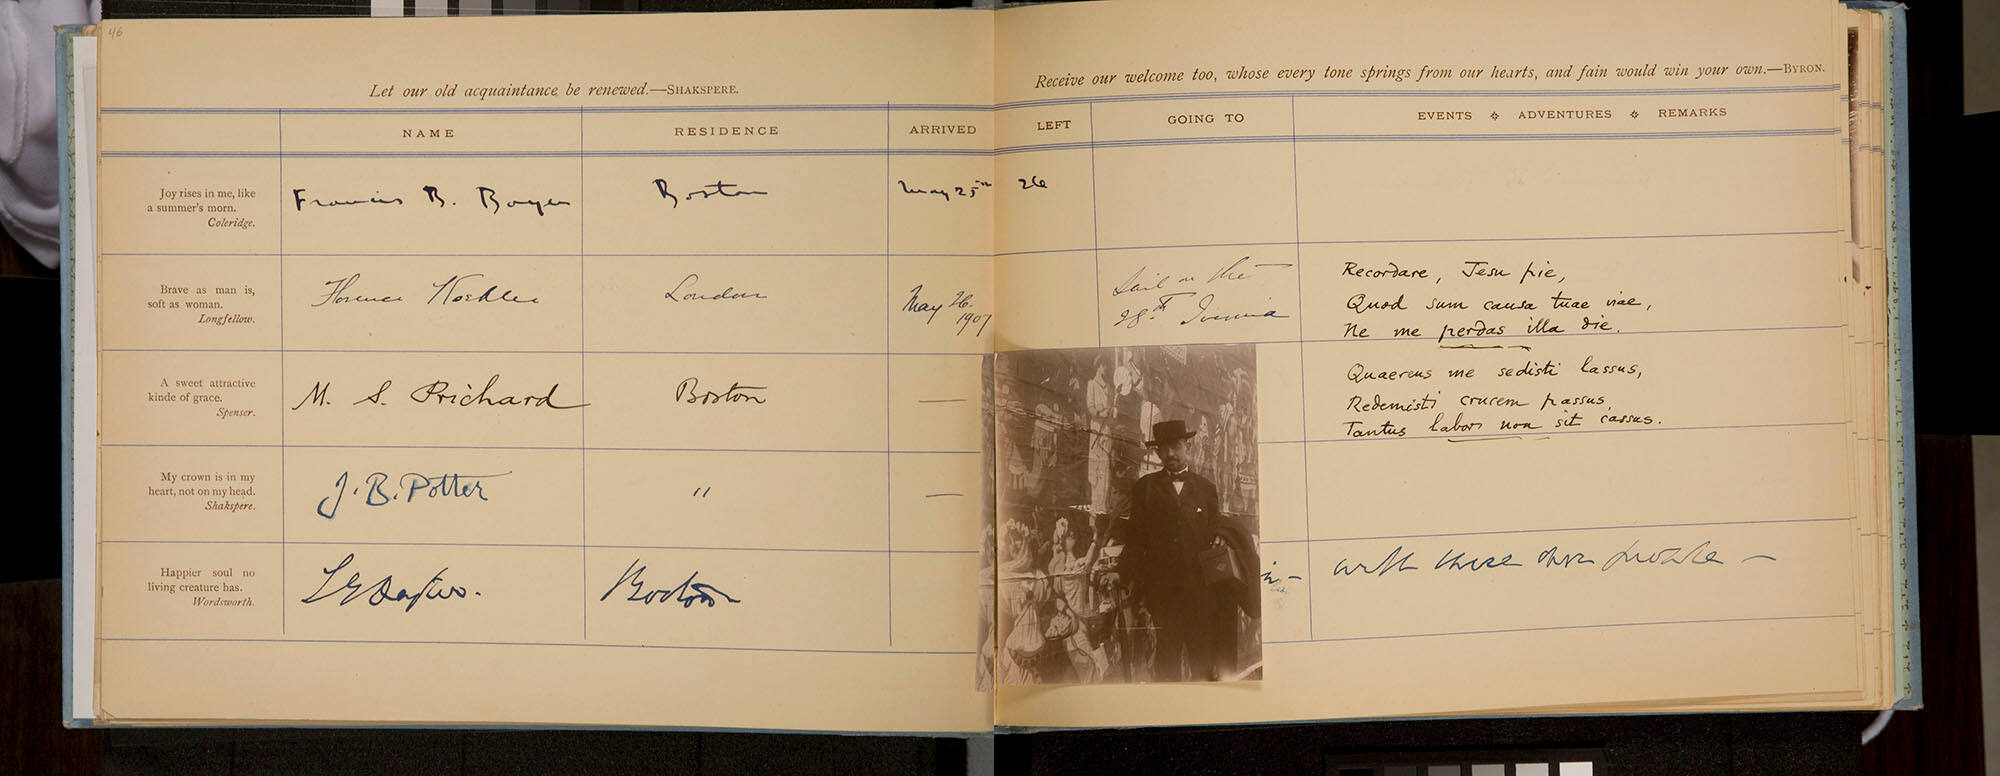 46
Let our old acquaintance be renewed.—SHAKSPERE.
Receive our welcome too, whose every tone springs from our hearts, and fain would win your own.—BYRON.
NAME RESIDENCE ARRIVED LEFT GOING TO EVENTS ADVENTURES REMARKS
Joy rises in me, like
a summer's morn.
Coleridge.
Francis B. Boston May 25th 26
Brave as man is,
soft as woman.
Longfellow.
Florence Koehler London May 26
1907
Sail on the
28th Ivernia
Recordare, Jesu pie,
Quod sum causa tuae viae,
Ne me perdas illa die.
A sweet attractive
kinde of grace.
Spenser.
M. S. Prichard Boston —
Quaerens me sedisti lassus,
Redemisti crucem passus
Tantus labor non sit cassus.
My crown is in my
heart, not on my head.
Shakspere.
J. B. Potter " —
Happier soul no
living creature has.
Wordsworth.
Boston
with these three